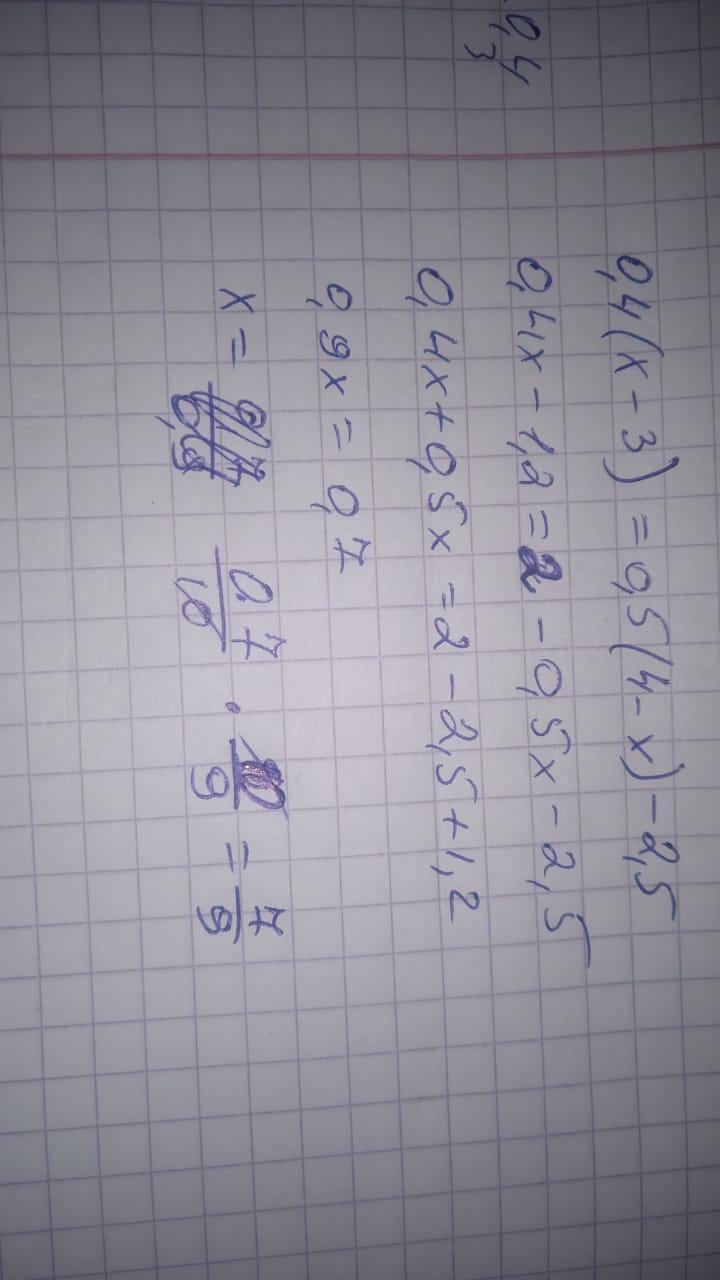 0,4
3
0,4(x-3)=0,5(4-x)-2,5
0,4x-1,2=2-0,5x-2,5
0,4x+0,5x=2-2,5+1,2
0,9x=0,7
x= 0,7/10 · 10/9 = 7/9